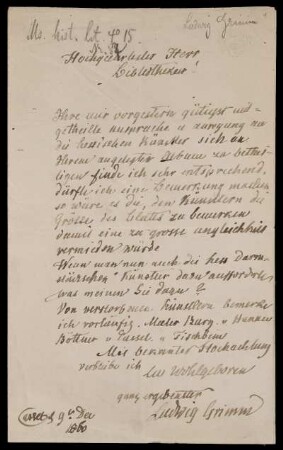 Ms. hist. lit. 4° 15
Ludwig Grimm
Hochgeehrtester Herr
Bibliothekar!
Ihre mir vorgestern gütigst mit-
getheilte Ansprache u anregung an
die hessischen Künstler sich an
Ihrem Album zu bethei-
ligen finde ich sehr entsprechend,
dürfte ich eine Bemerkung machen
so wäre es die, den Künstlern die
Grösse des Blatts zu bemerken
damit eine zu grosse ungleichheit
vermieden würde
Wenn man nun auch die hess Darm-
städtischen Künstler dazu aufforderte
was meinen Sie dazu?
Von verstorbnen Künstlern bemerke
ich vorläufig. Maler Bury. v Hanau
Böttner v Cassel. v Tischbein
Mit bekannter Hochachtung
verbleibe ich
Euer Wohlgeboren
ganz ergebenster
Ludwig Grimm
Cassel 9ten Dec
1860